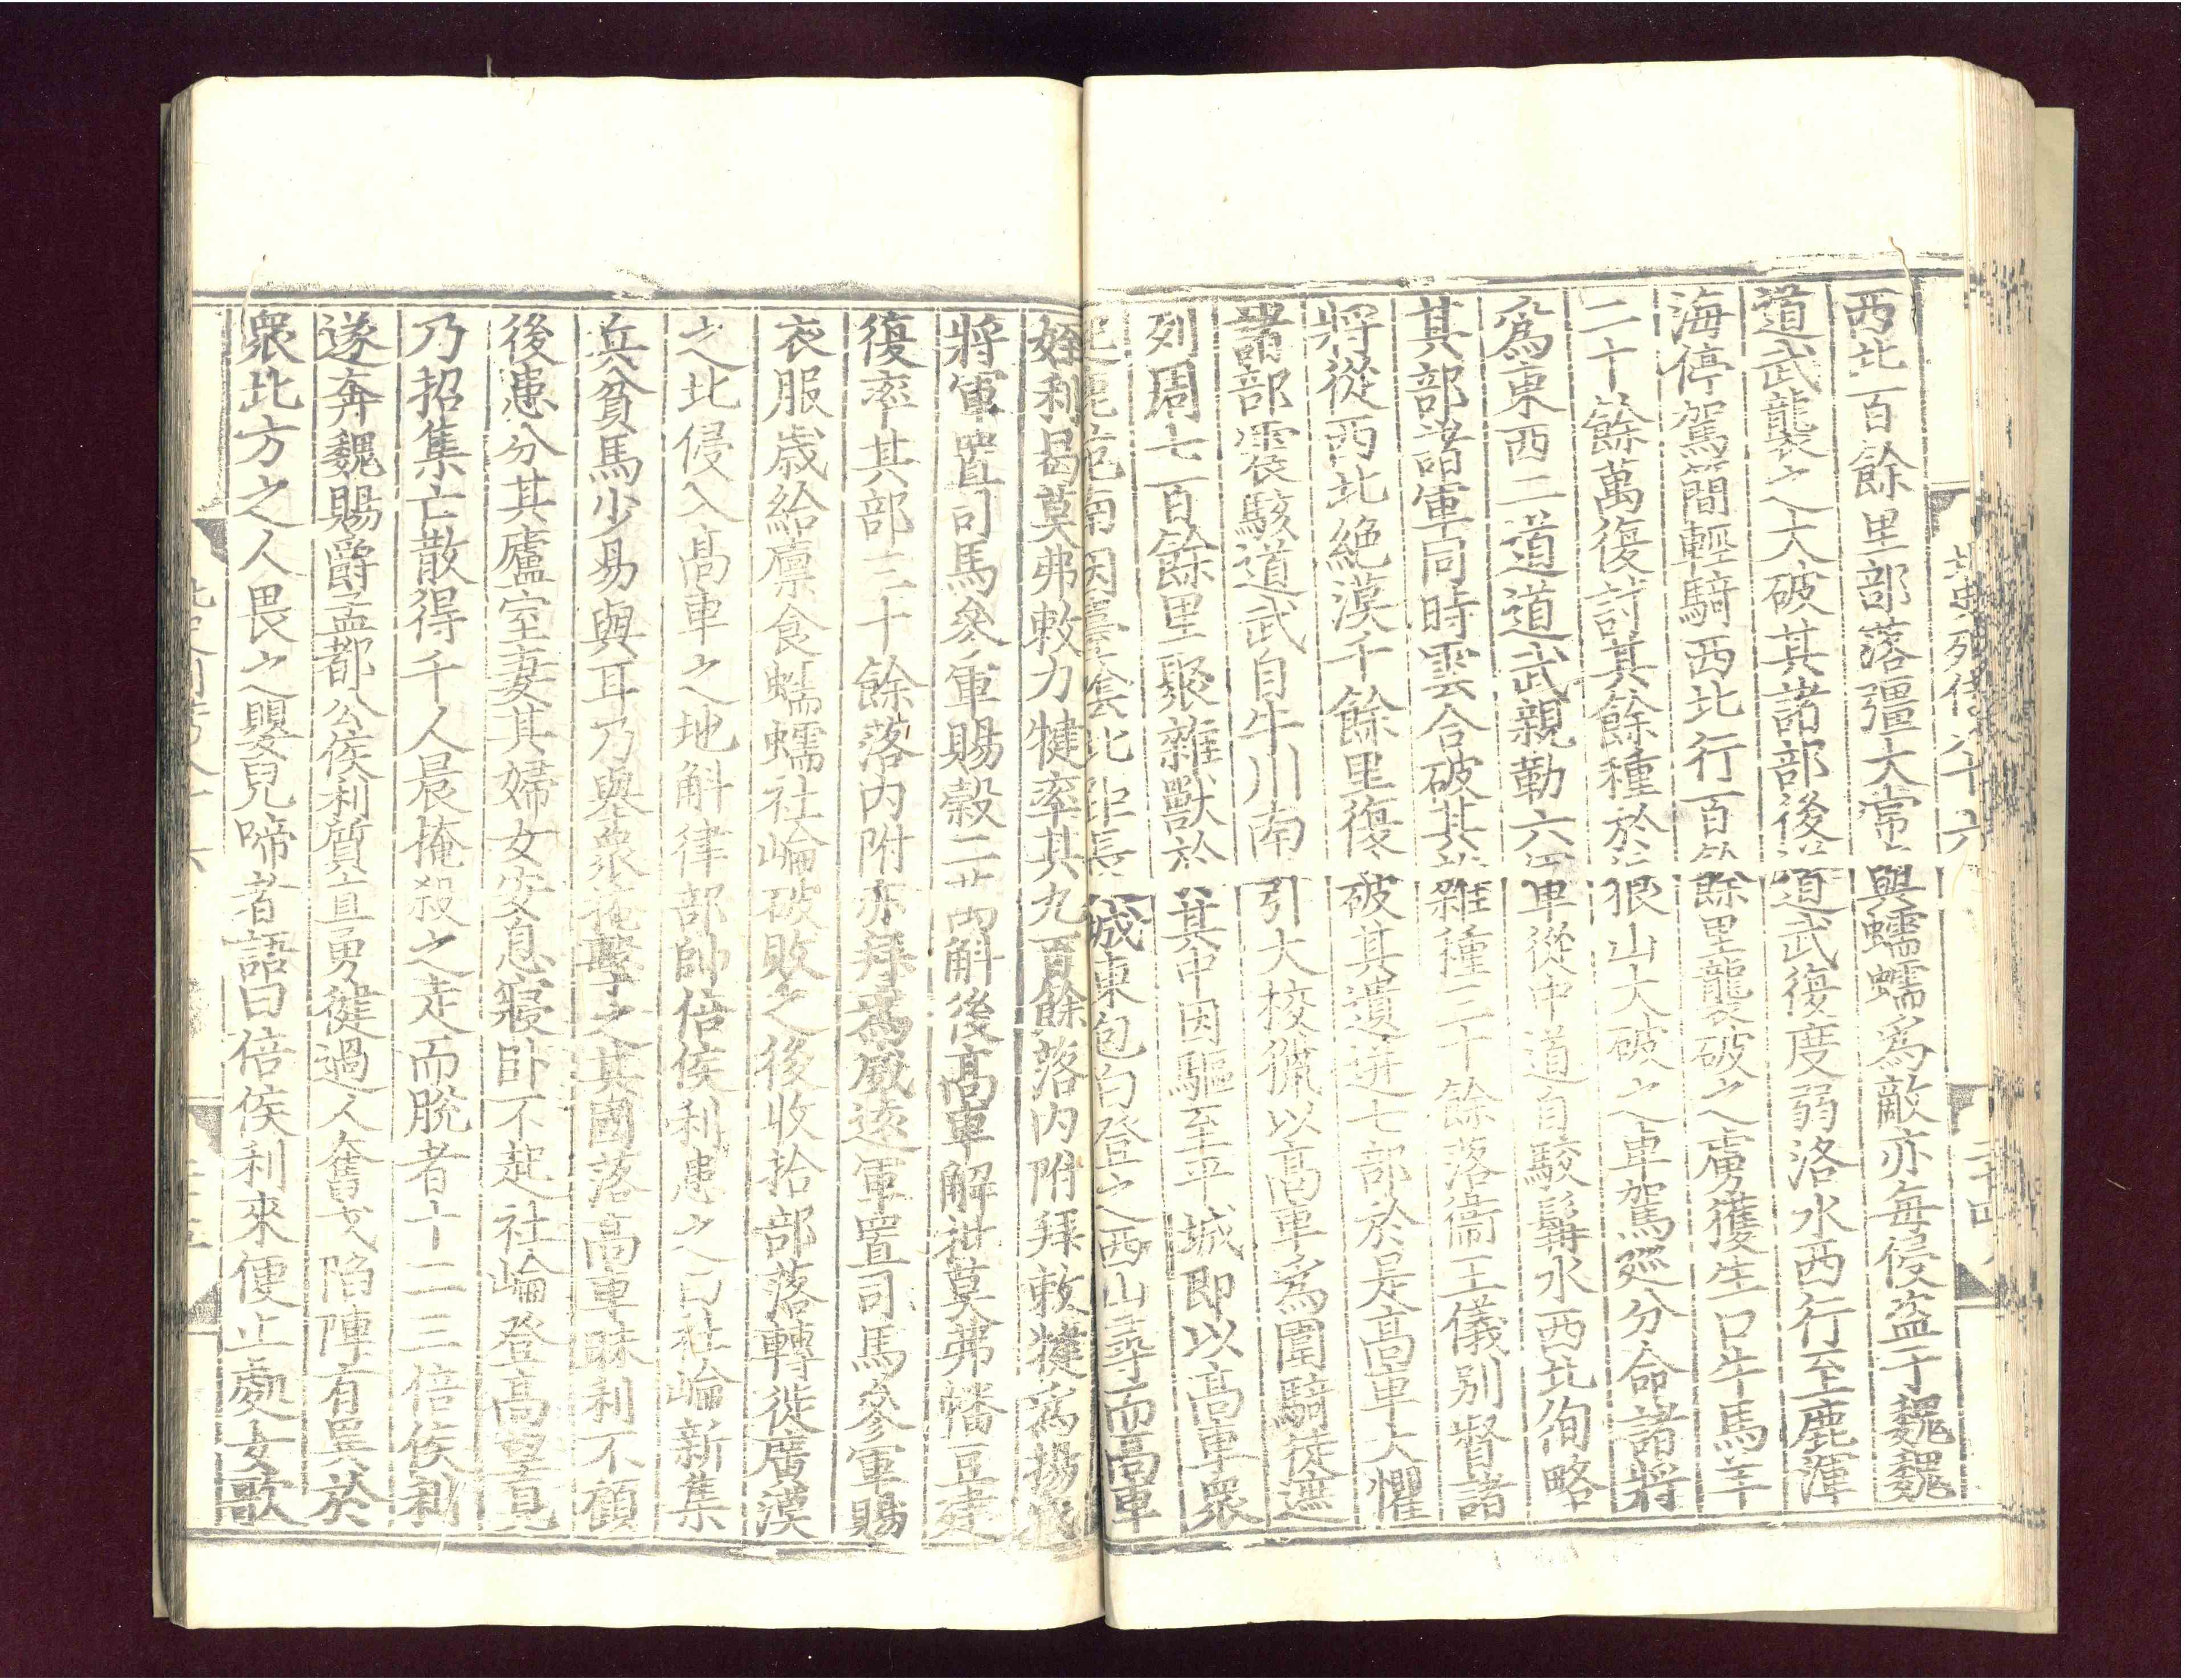 北史列傳八十六 二十四
西北百餘里部落彊大常與蠕蠕爲敵亦每侵盗于魏魏
道武襲之大破其諸部後道武復度弱洛水西行至鹿渾
海停駕簡輕騎西北行百餘里襲破之虜獲生口牛馬羊
二十餘萬復討其餘種於狼山大破之車駕廵分命諸將
爲東西二道道武親勒六軍從中道自駮髯水西北徇略
其部諸軍同時雲合破其雜種三十餘落衞王儀别督諸
將從西北絶漠千餘里復破其遺迸七部於是高車大懼
諸部震駭道武自牛川南引大校獵以高車爲圍騎徒遮
列周七百餘里聚雜獸於其中因驅至平城即以高車衆
起鹿苑南因臺陰北距長城東包白登之西山尋而高車
姪利曷莫弗敕力犍率其九百餘落内附拜敕力犍爲揚威
將軍置司馬參軍賜穀二萬斛後高車解批莫弗幡豆建
復率其部三十餘落内附亦拜爲威遠軍置司馬參軍賜
衣服歲給廪食蠕蠕社崘破敗之後收拾部落轉徙廣漠
之北侵入高車之地斛律部帥倍侯利患之曰社崘新集
兵貧馬少易與耳乃舉衆掩擊之其國落高車昧利不顧
後患分其廬室妻其婦女安息寢卧不起社崘登高望見
乃招集亡散得千人晨掩殺之走而脫者十二三倍侯利
遂奔魏賜爵孟都公侯利質直勇健過人奮戈陷陣有異於
衆北方之人畏之嬰兒啼者語曰倍侯利來便止處女歌